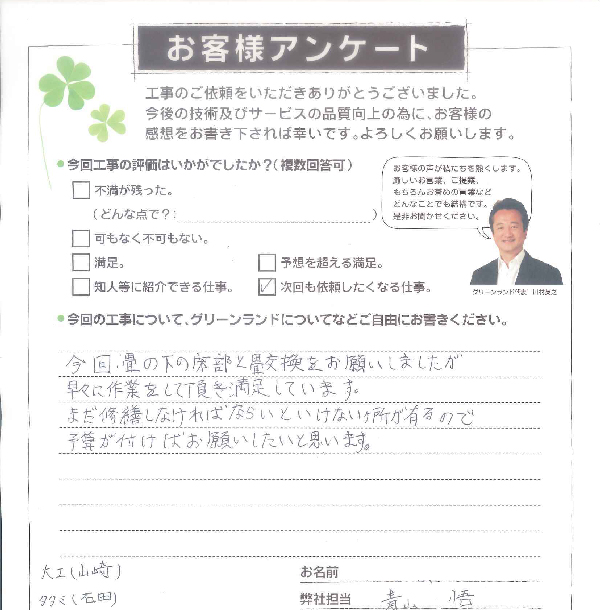 お客様アンケート
工事のご依頼をいただきありがとうございました。
今後の技術及びサービスの品質向上の為に、お客様の
感想をお書き下されば幸いです。よろしくお願いします。
●今回工事の評価はいかがでしたか?(複数回答可)
お客様の声が私たちを強くします。
厳しいお言葉、ご提案、
もちろんお褒めの言葉など
どんなことでも結構です。
是非お聞かせください。
不満が残った。
(どんな点で?: )
可もなく不可もない。
満足。
予想を超える満足。
知人等に紹介できる仕事。
次回も依頼したくなる仕事。
グリーンランド代表
●今回の工事について、グリーンランドについてなどご自由にお書きください。
今回、畳の下の床部と畳交換をお願いしましたが
早々に作業をして頂き満足しています。
まだ修繕しなければならいといけない箇所が有るので
予算が付けばお願いしたいと思います。
大工(山崎)
お名前
タタミ(石田)
弊社担当 青山 悟